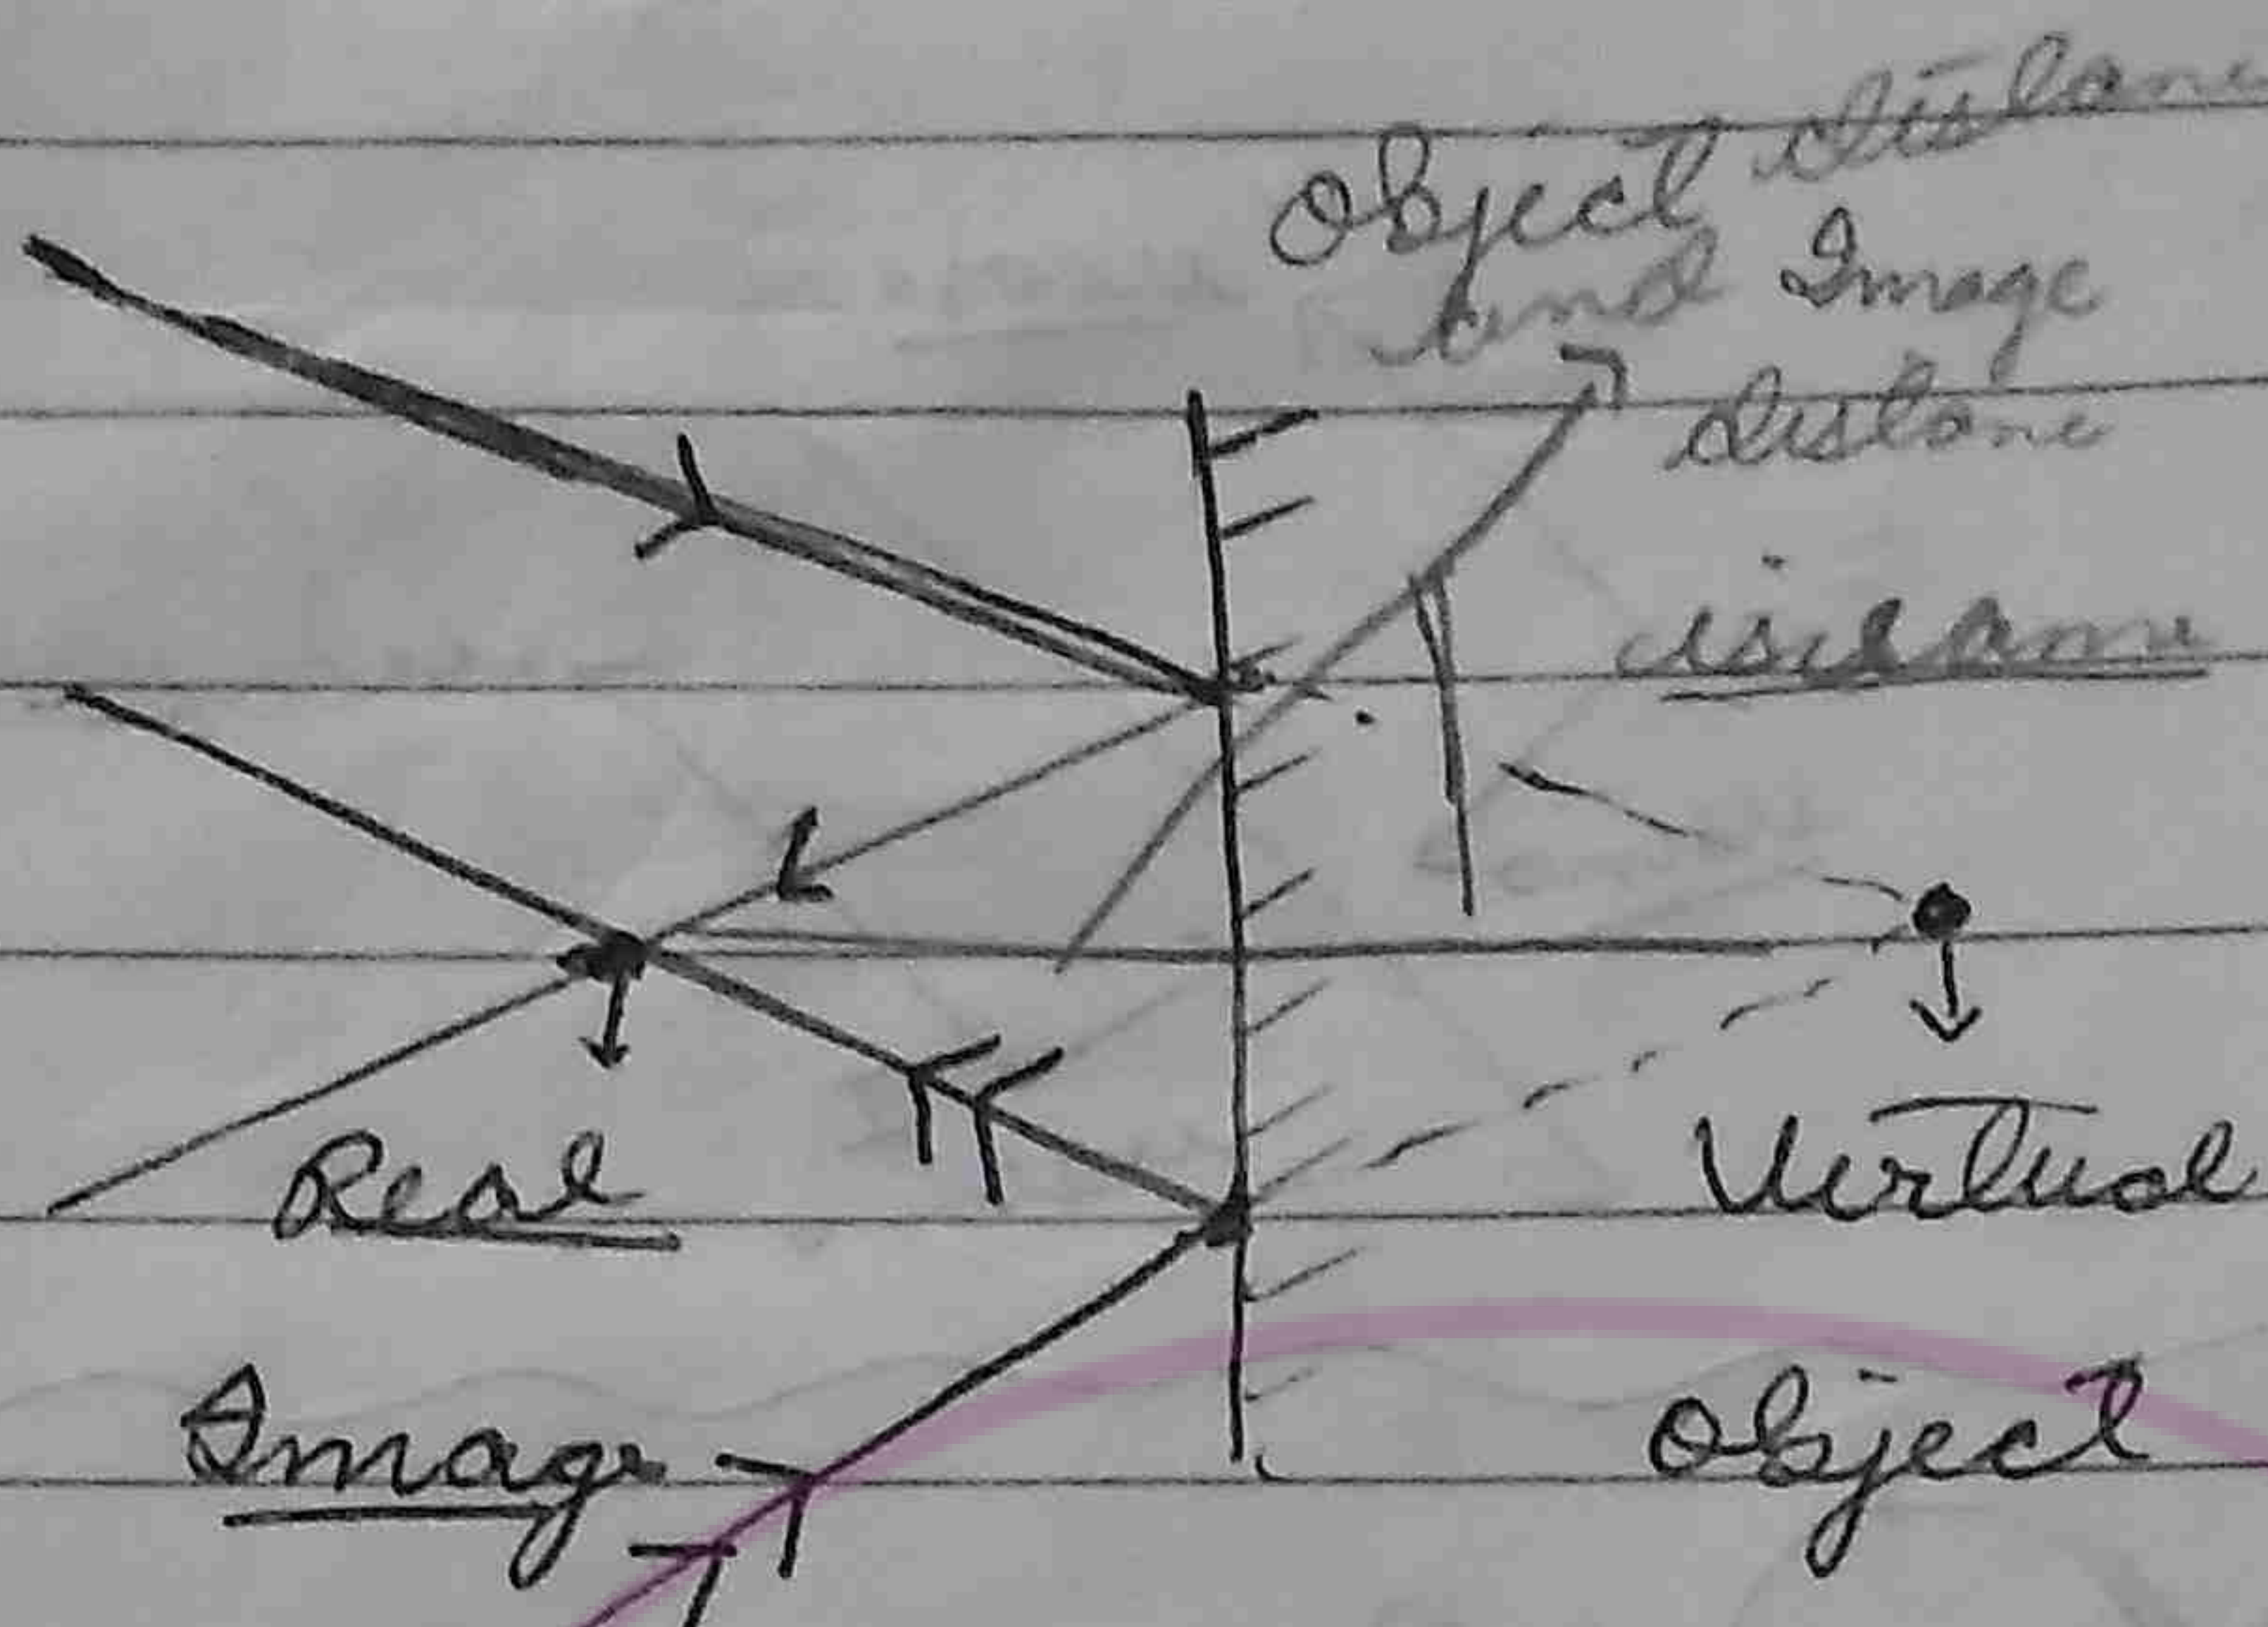 Object distanc
and Image
distanc
Real
Virtual
Image
Object